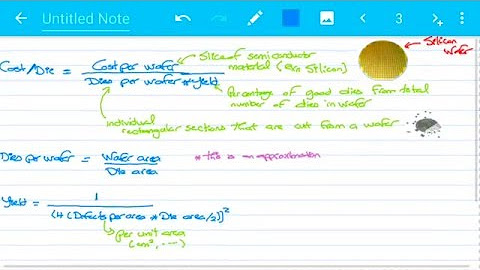 Untitled Note
3
Slice of semiconductor
material (ex: Silicon)
Silicon
Wafer
Cost/Die = Cost per wafer
Dies per wafer * yield
Percentage of good dies from total
number of dies in wafer
individual
rectangular sections that are cut from a wafer
Dies per wafer = Wafer area
Die area
* this is an approximation
Yield = 1
(1+(Defects per area * Die area/2))²
per unit area
(cm², ...)